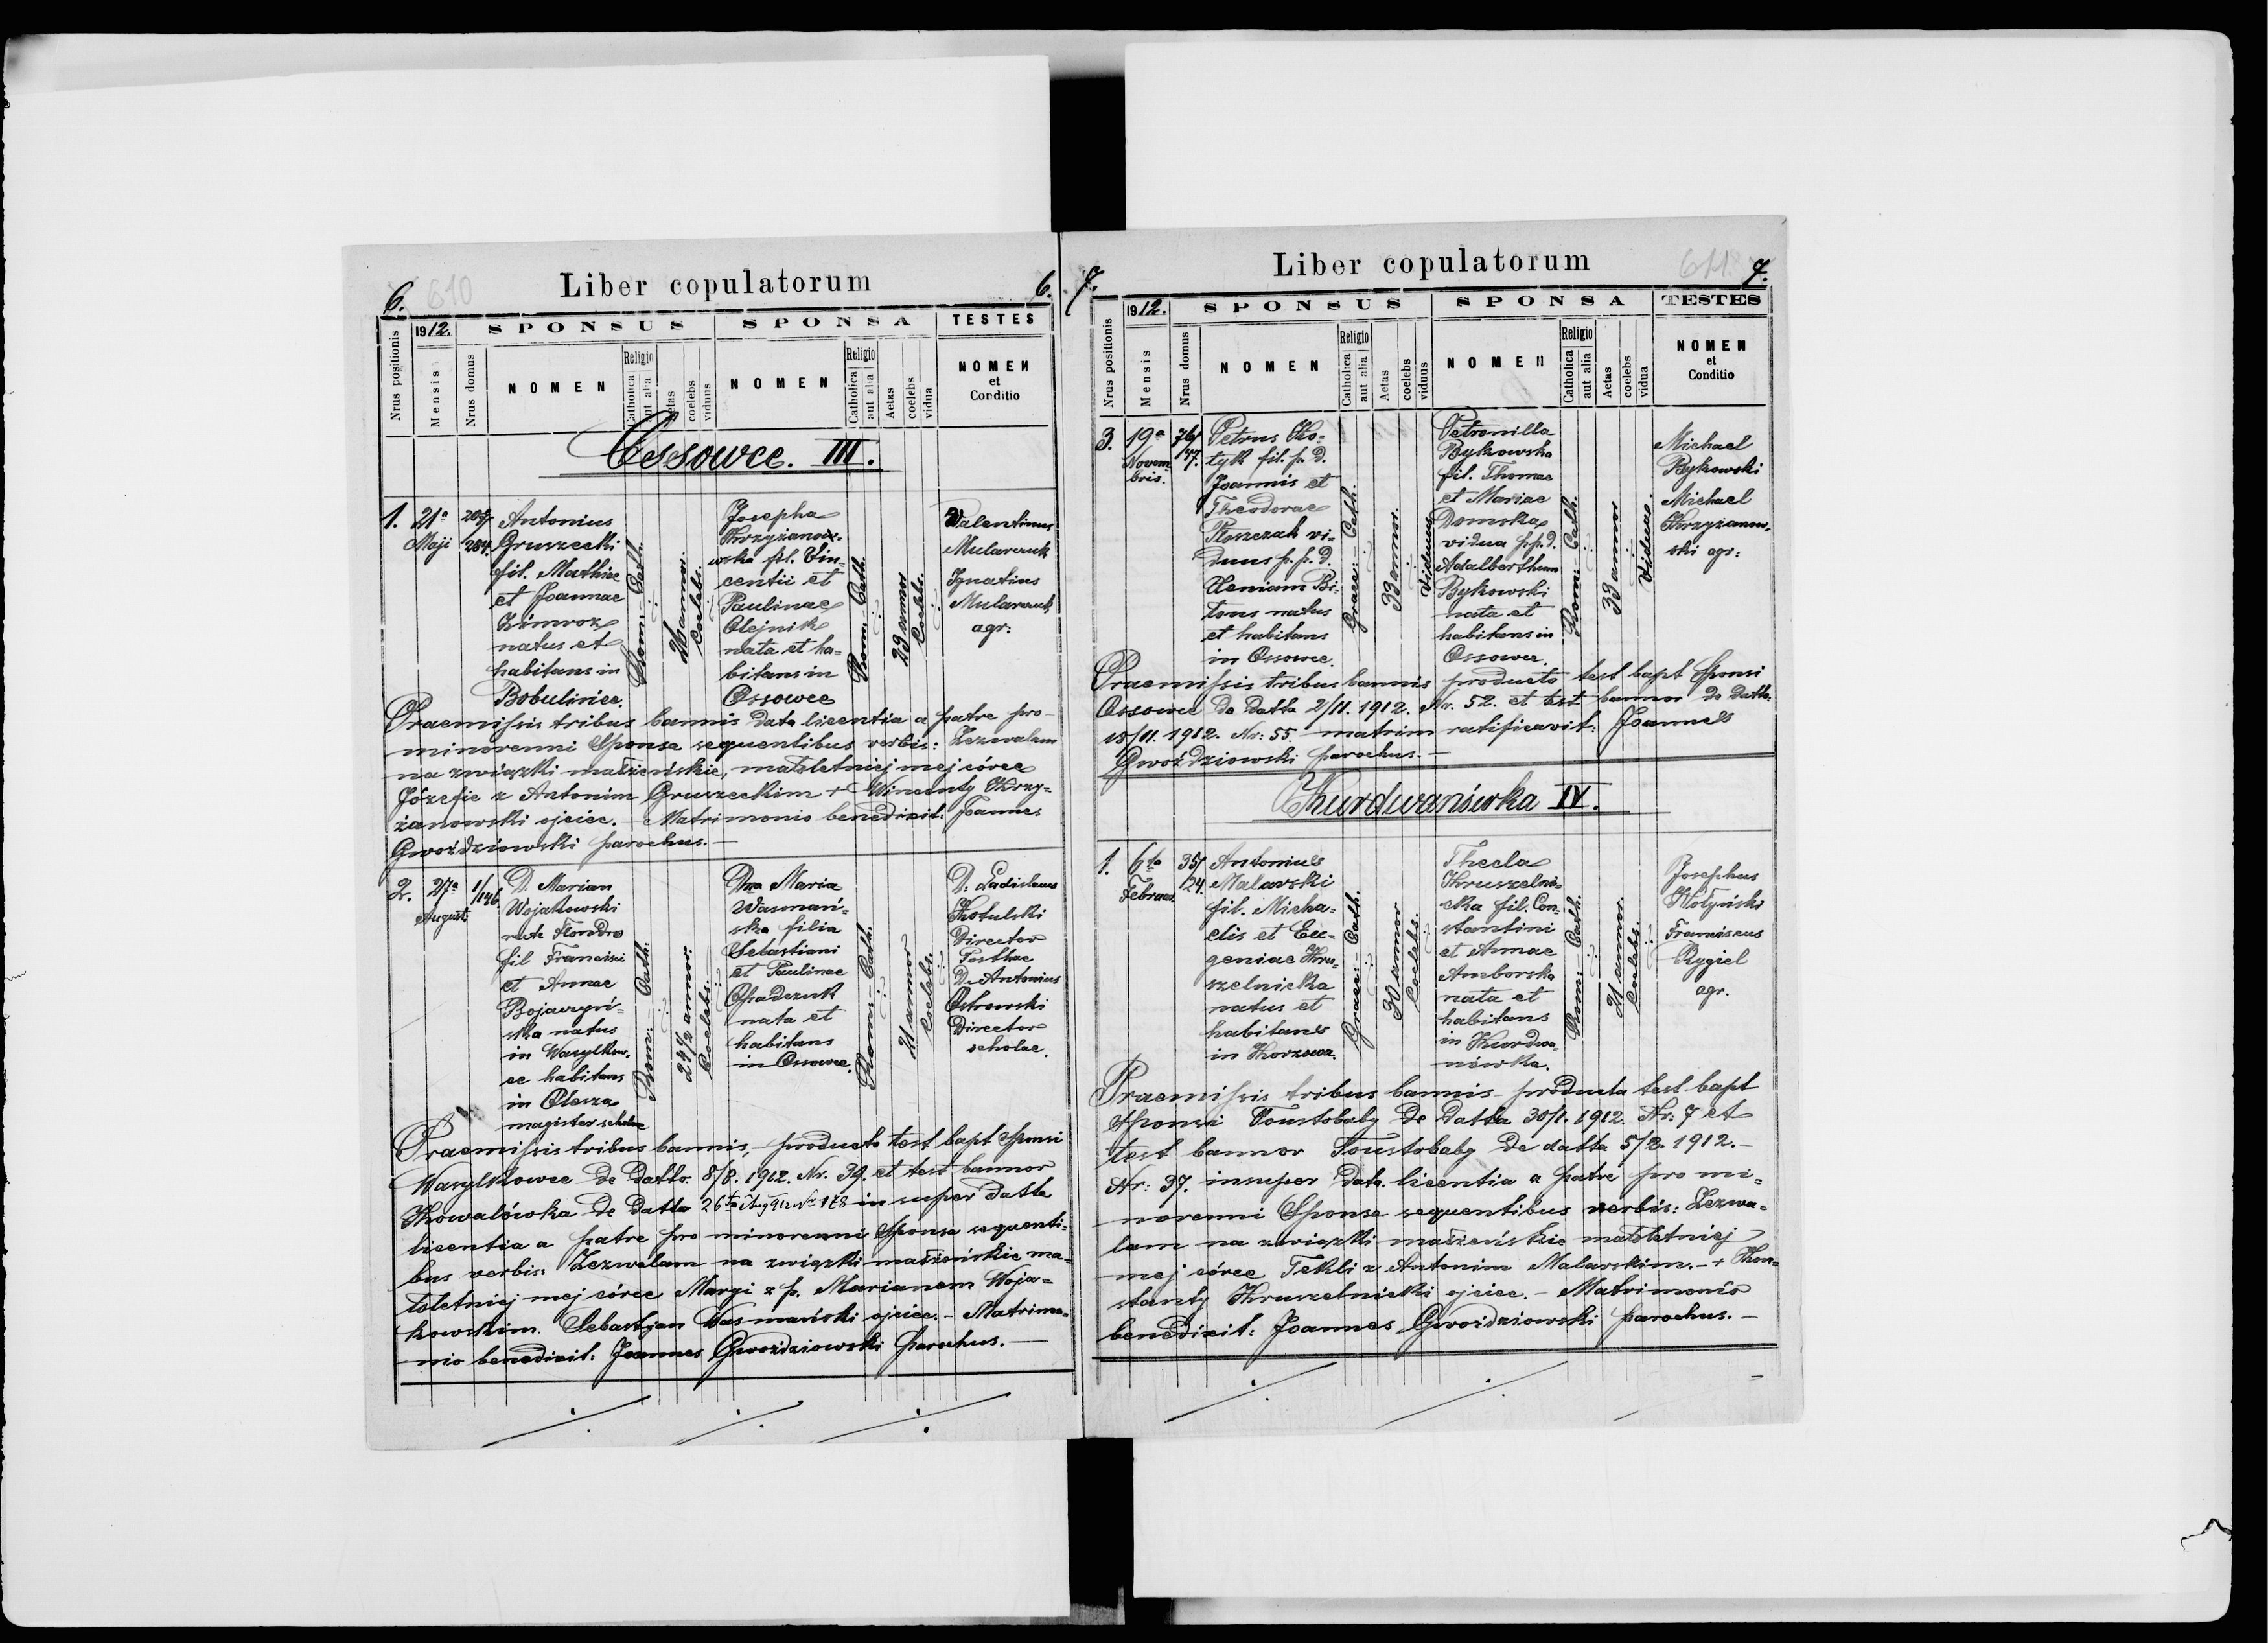 6. 610 Liber copulatorum 6.
Nrus positionis
1912.
Mensis
SPONSUS
Nrus domus
NOMEN
Religio
Catholica
aut alia
Aetas
coelebs
viduus
SPONSA
NOMEN
Religio
Catholica
aut alia
Aetas
coelebs
vidua
TESTES
NOMEN
et
Conditio
Ossowce. III.
1.
21a
Maji
284.
Antonius
Gruszecki
fil. Mathiae
et Joannae
Zimroz
natus et
habitans in
Bobulince.
Rom: Cath.
26 annor.
Coelebs.
Josepha
Krzyżanow-
wska fil. Vin-
centii et
Paulinae
Olejnik
nata et ha-
bitans in
Ossowce
Rom: Cath.
29 annor
Coelebs.
Valentinus
Mularczuk
Ignatius
Mularczuk
agr:
Praemissis tribus bannis data licentia a patre pro
minorenni Sponsa sequentibus verbis: Zezwalam
na związki małżeńskie, małoletniej mej córce
Józefie z Antonim Gruszeckim + Wincenty Krzy-
żanowski ojciec. - Matrimonio benedixit: Joannes
Gwoździowski parochus. -
2.
27a
August.
1/146.
D. Marian
Wojakowski
fil Francisci
et Annae
Bojarzyń-
ska natus
in Wasylkow-
ce habitans
in Olesza
magister scholae
Rom: - Cath.
24 1/2 annor.
Coelebs.
Dna Maria
Wasmań-
ska filia
Sebastiani
et Paulinae
Opadczuk
nata et
habitans
in Ossowce.
Rom: - Cath.
21 annor
Coelebs.
D. Ladislaus
Kotulski
Director
D. Antonius
Ostrowski
Director
scholae.
Praemissis tribus bannis, - producto test. bapt Sponsi
Wasylkowce de datto. 8/8. 1912. Nr. 39. et test bannor
Kowalówka de datto 26 Aug 912 Nr 178 in super datta
licentia a patre pro minorenni Sponsa sequenti-
bus verbis: Zezwalam na związki małżeńskie ma-
łoletniej mej córce Maryi z p. Marianem Woja-
kowskim. Sebastjan Wasmański ojciec. - Matrimo-
nio benedixit: Joannes Gwoździowski parochus. -
7. Liber copulatorum 611 7.
Nrus positionis
1912.
Mensis
SPONSUS
Nrus domus
NOMEN
Religio
Catholica
aut alia
Aetas
coelebs
viduus
SPONSA
NOMEN
Religio
Catholica
aut alia
Aetas
coelebs
vidua
TESTES
NOMEN
et
Conditio
3.
19a
Novem-
bris.
76/
77.
Petrus Ko-
tyk fil. p. D.
Joannis et
Theodorae
Płoszczak vi-
duus p. p. D.
natus
et habitans
in Ossowce.
Graec: - Cath.
33 annor.
Viduus
Petronilla
Bykowska
fil. Thomae
et Mariae
Domska
vidua p. p. D.
Adalberthum
Bykowski
nata et
habitans in
Ossowce.
Rom: - Cath.
33 annor
Viduae.
Michael
Bykowski
Michael
Krzyżanow-
ski agr:
Praemissis tribus bannis producto test bapt Sponsi
Ossowce de datta 2/11. 1912. Nr. 52. et test bannor de datto.
18/11. 1912. Nr: 55. - matrim ratificavit: Joannes
Gwoździowski parochus. -
Kurdwanówka IV.
1.
6ta
Februar.
35/
24.
Antonius
Malarski
fil. Micha-
elis et Eu-
geniae Kru-
szelnicka
natus et
habitans
in Korzowa.
Graec: - Cath.
30 annor
Coelebs.
Thecla
Kruszelni-
cka fil. Con-
stantini
et Annae
Amborska
nata et
habitans
in Kurdwa-
nówka.
Rom: - Cath.
21 annor.
Coelebs.
Josephus
Wołyński
Franciscus
Rygiel
agr.
Praemissis tribus bannis producta test bapt
Sponsi Toustobaby de datta 30/1. 1912. Nr: 7 et
test bannor Toustobaby de datta 5/2. 1912. -
Nr: 37. insuper data licentia a patre pro mi-
norenni Sponsa sequentibus verbis: Zezwa-
lam na związki małżeńskie małoletniej
mej córce Tekli z Antonim Malarskim. - + Kon-
stanty Kruszelnicki ojciec. - Matrimonio
benedixit: Joannes Gwoździowski parochus. -